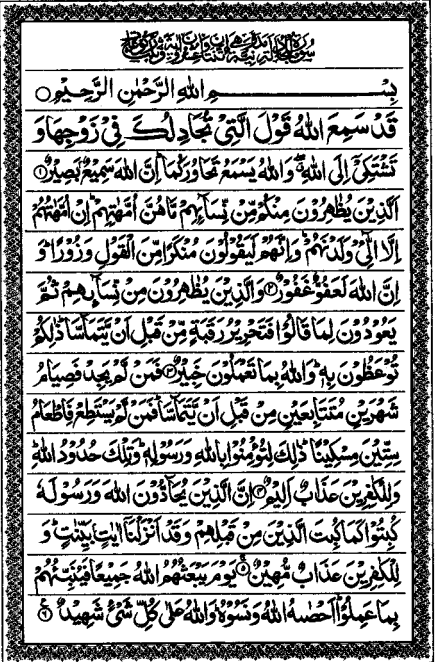 بِسْــــــمِ اللهِ الرَّحْمٰنِ الرَّحِيْمِ ○
قَدْ سَمِعَ اللهُ قَوْلَ الَّتِيْ تُجَادِلُكَ فِيْ زَوْجِهَا وَ
تَشْتَكِيْۤ اِلَى اللهِ ۖ وَاللهُ يَسْمَعُ تَحَاوُرَكُمَا ؕ اِنَّ اللهَ سَمِيْعٌۢ بَصِيْرٌ ۝۱
اَلَّذِيْنَ يُظٰهِرُوْنَ مِنْكُمْ مِّنْ نِّسَآىِٕهِمْ مَّا هُنَّ اُمَّهٰتِهِمْ ؕ اِنْ اُمَّهٰتُهُمْ
اِلَّا الّٰٓـِٔيْ وَلَدْنَهُمْ ؕ وَاِنَّهُمْ لَيَقُوْلُوْنَ مُنْكَرًا مِّنَ الْقَوْلِ وَزُوْرًا ؕ وَ
اِنَّ اللهَ لَعَفُوٌّ غَفُوْرٌ ۝۲ وَالَّذِيْنَ يُظٰهِرُوْنَ مِنْ نِّسَآىِٕهِمْ ثُمَّ
يَعُوْدُوْنَ لِمَا قَالُوْا فَتَحْرِيْرُ رَقَبَةٍ مِّنْ قَبْلِ اَنْ يَّتَمَآسَّا ؕ ذٰلِكُمْ
تُوْعَظُوْنَ بِهٖ ؕ وَاللهُ بِمَا تَعْمَلُوْنَ خَبِيْرٌ ۝۳ فَمَنْ لَّمْ يَجِدْ فَصِيَامُ
شَهْرَيْنِ مُتَتَابِعَيْنِ مِنْ قَبْلِ اَنْ يَّتَمَآسَّا ۚ فَمَنْ لَّمْ يَسْتَطِعْ فَاِطْعَامُ
سِتِّيْنَ مِسْكِيْنًا ؕ ذٰلِكَ لِتُؤْمِنُوْا بِاللهِ وَرَسُوْلِهٖ ؕ وَتِلْكَ حُدُوْدُ اللهِ ؕ
وَلِلْكٰفِرِيْنَ عَذَابٌ اَلِيْمٌ ۝۴ اِنَّ الَّذِيْنَ يُحَآدُّوْنَ اللهَ وَرَسُوْلَهٗ
كُبِتُوْا كَمَا كُبِتَ الَّذِيْنَ مِنْ قَبْلِهِمْ وَقَدْ اَنْزَلْنَاۤ اٰيٰتٍۭ بَيِّنٰتٍ ؕ وَ
لِلْكٰفِرِيْنَ عَذَابٌ مُّهِيْنٌ ۝۵ يَوْمَ يَبْعَثُهُمُ اللهُ جَمِيْعًا فَيُنَبِّئُهُمْ
بِمَا عَمِلُوْا ؕ اَحْصٰىهُ اللهُ وَنَسُوْهُ ؕ وَاللهُ عَلٰى كُلِّ شَيْءٍ شَهِيْدٌ ۝۶